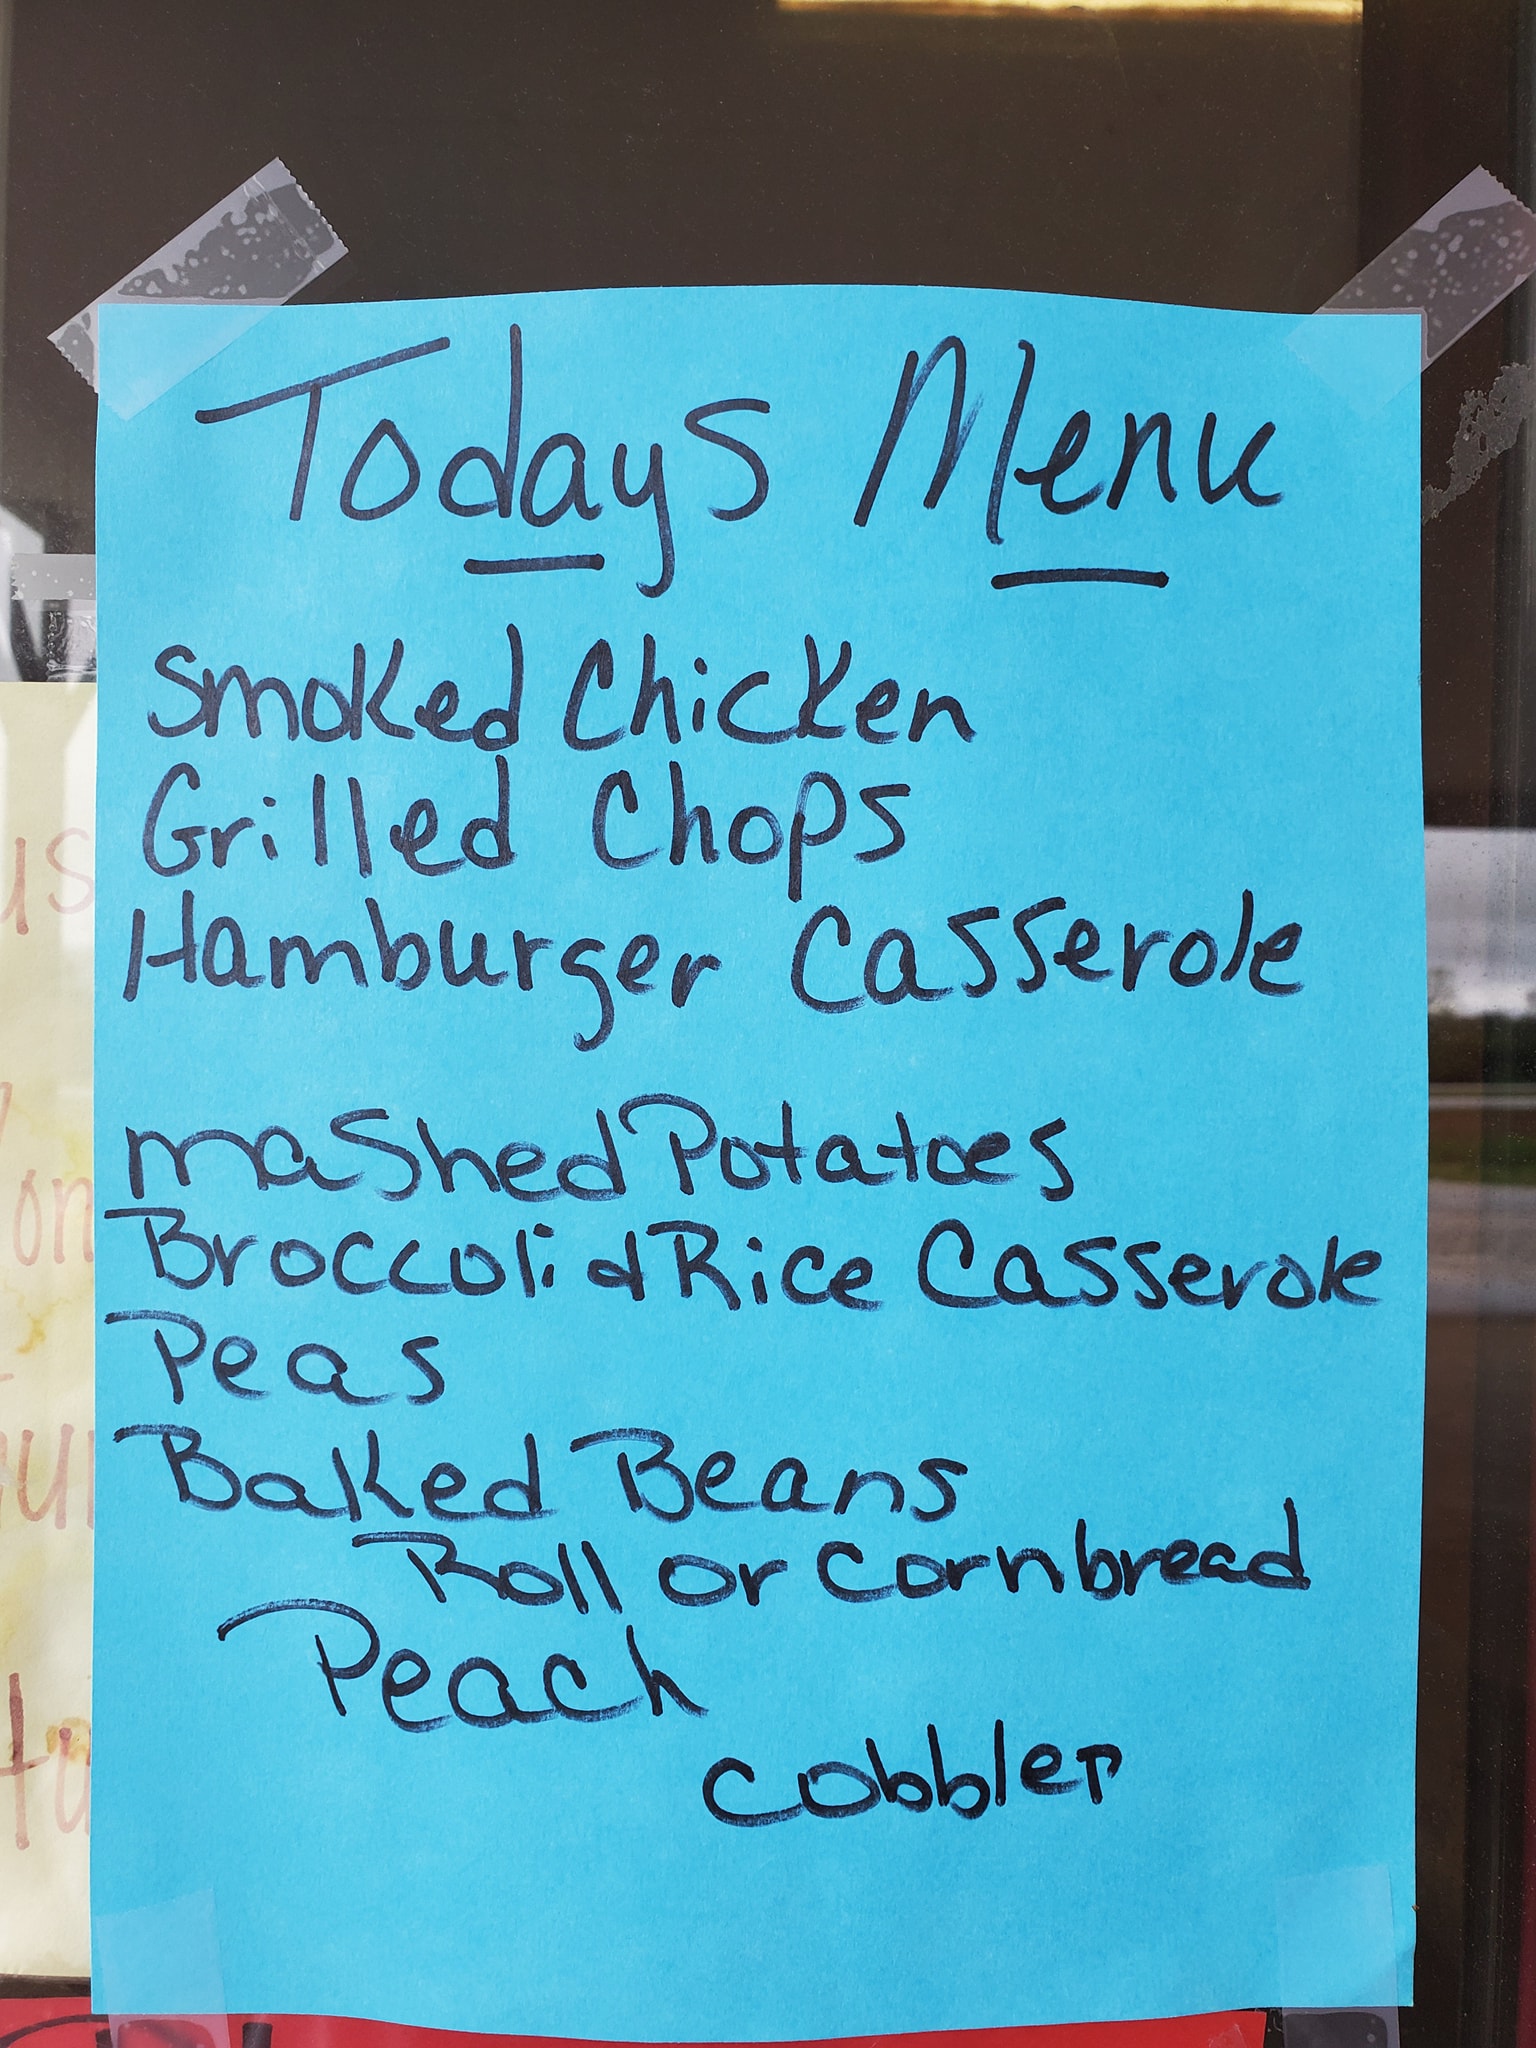 Todays Menu
Smoked Chicken
Grilled Chops
Hamburger Casserole
mashed Potatoes
Broccoli & Rice Casserole
Peas
Baked Beans
Roll or cornbread
Peach
cobbler